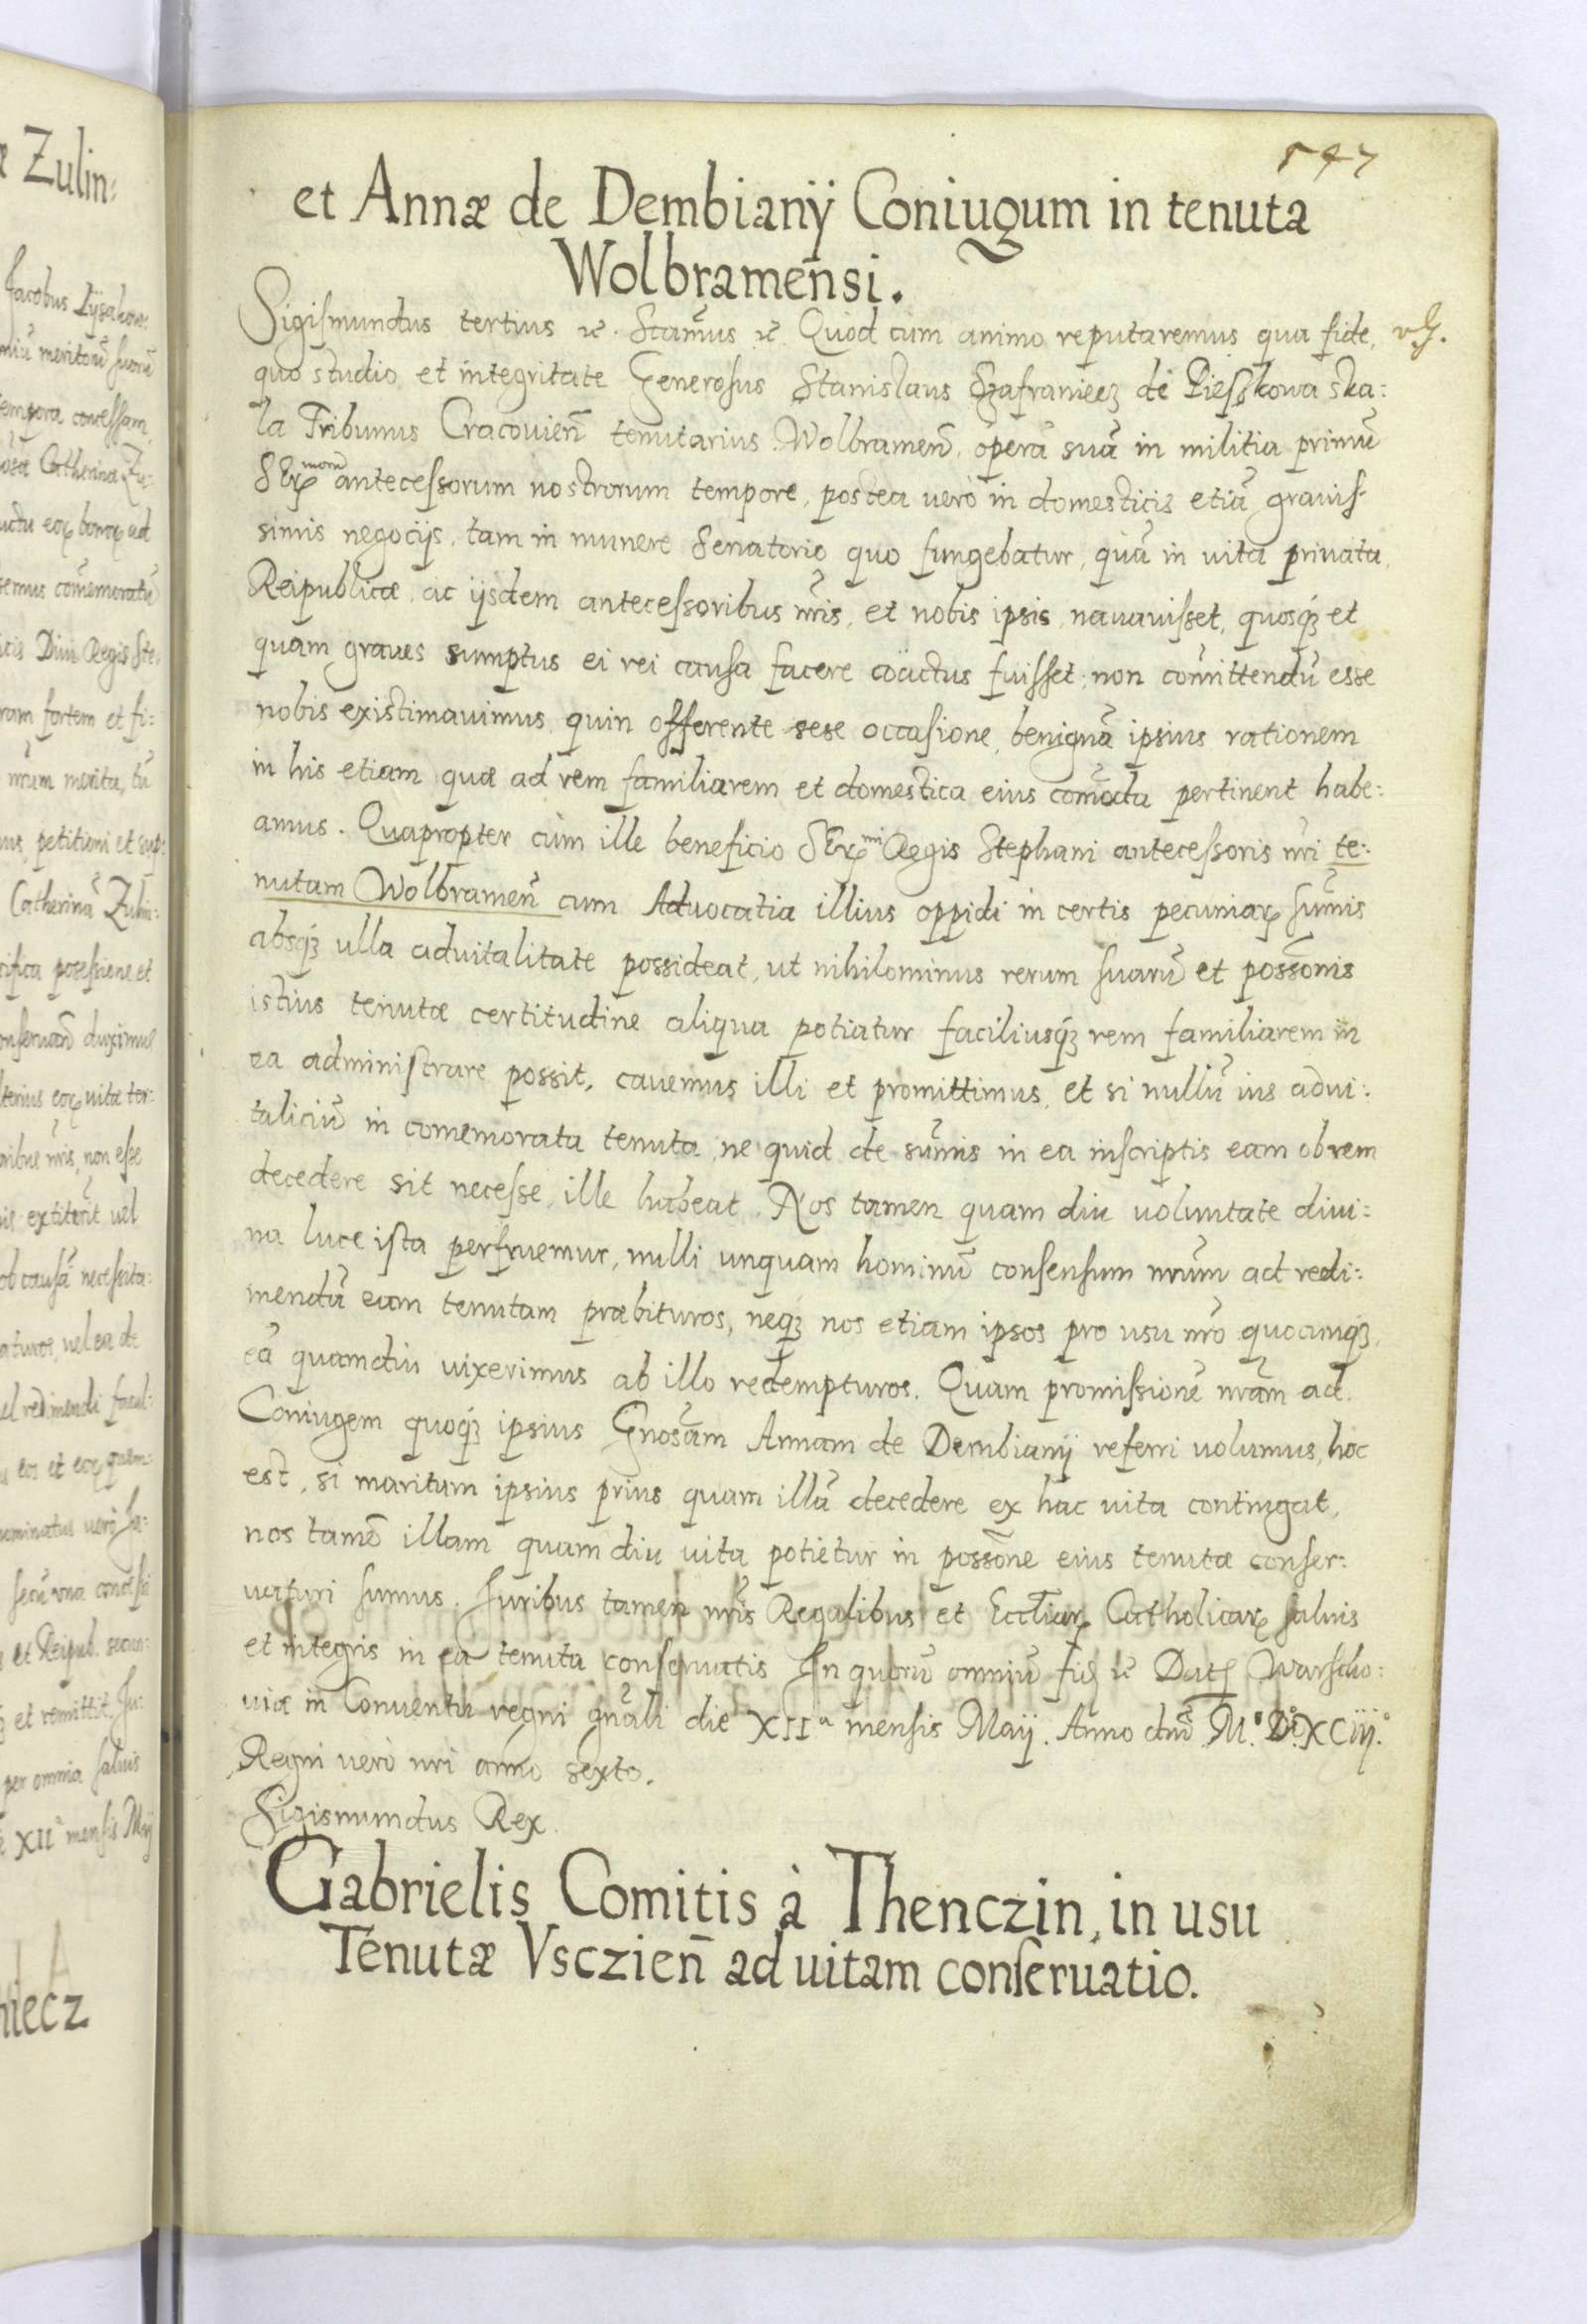 547
et Annæ de Dembianÿ Coniugum in tenuta
Wolbramen̄si.
Sigismundus tertius etc. Stamus etc. Quod cum animo reputaremus qua fide,
quo studio et integritate Generosus Stanislaus Szafraniecz de Piesskowa ska:
la Tribunus Cracovien̄ tenutarius Wolbramen̄. operā suā in militia primū
SErmorum antecessorum nostrorum tempore, postea vero in domesticis etiā grauis-
simis negocijs, tam in munere Senatorio quo fungebatur, quā in vita priuata,
Reipublicæ, ac ijsdem antecessoribus nr̄is, et nobis ipsis nauauisset, quosq3 et
quam graues sumptus ei rei causa facere coactus fuisset, non com̄ittendū esse
nobis existimauimus quin offerente sese occasione, benignā ipsius rationem
in his etiam quæ ad rem familiarem et domestica eius com̄oda pertinent habe:
amus. Quapropter cùm ille beneficio SErmi Regis Stephani antecessoris nr̄i te:
nutam Wolbramen̄ cum Aduocatia illius oppidi in certis pecuniarꝝ sum̄is
absq3 ulla aduitalitate possideat, ut nihilominus rerum suarū et possōnis
istius tenutæ certitudine aliqua potiatur faciliusq3 rem familiarem in
ea administrare possit, cauemus illi et promittimus, et si nullū ius adui:
taliciū in comemorata tenuta, ne quid de sum̄is in ea inscriptis eam ob rem
decedere sit necesse, ille habeat. Nos tamen quam diu voluntate diui:
na luce ista perfruemur, nulli unquam hominū consensum nr̄um ad redi:
mendū eam tenutam præbituros, neq3 nos etiam ipsos pro usu nr̄o quocunq3,
eā quamdiu vixerimus ab illo redempturos. Quam promissionē nr̄am ad
Coniugem quoq3 ipsius Gnosam Annam de Dembianÿ referri volumus, hoc
est, si maritum ipsius prius quam illā decedere ex hac vita contingat,
nos tamē illam quam diu vita potietur in possōne eius tenutæ conser:
uaturi sumus. Iuribus tamen nr̄is Regalibus et Eccl̄iarꝝ Catholicarꝝ saluis
et integris in ea tenuta conseruatis In quorū omniū fid etc Dat Warscho:
uiæ in Conuentu regni gn̄ali die XIIa mensis Maij. Anno dn̄i M.D.XCiij.
Regni verò nr̄i anno sexto.
Sigismundus Rex.
Gabrielis Comitis à Thenczin, in usu
Tenutæ Vsczien̄ ad uitam conseruatio.